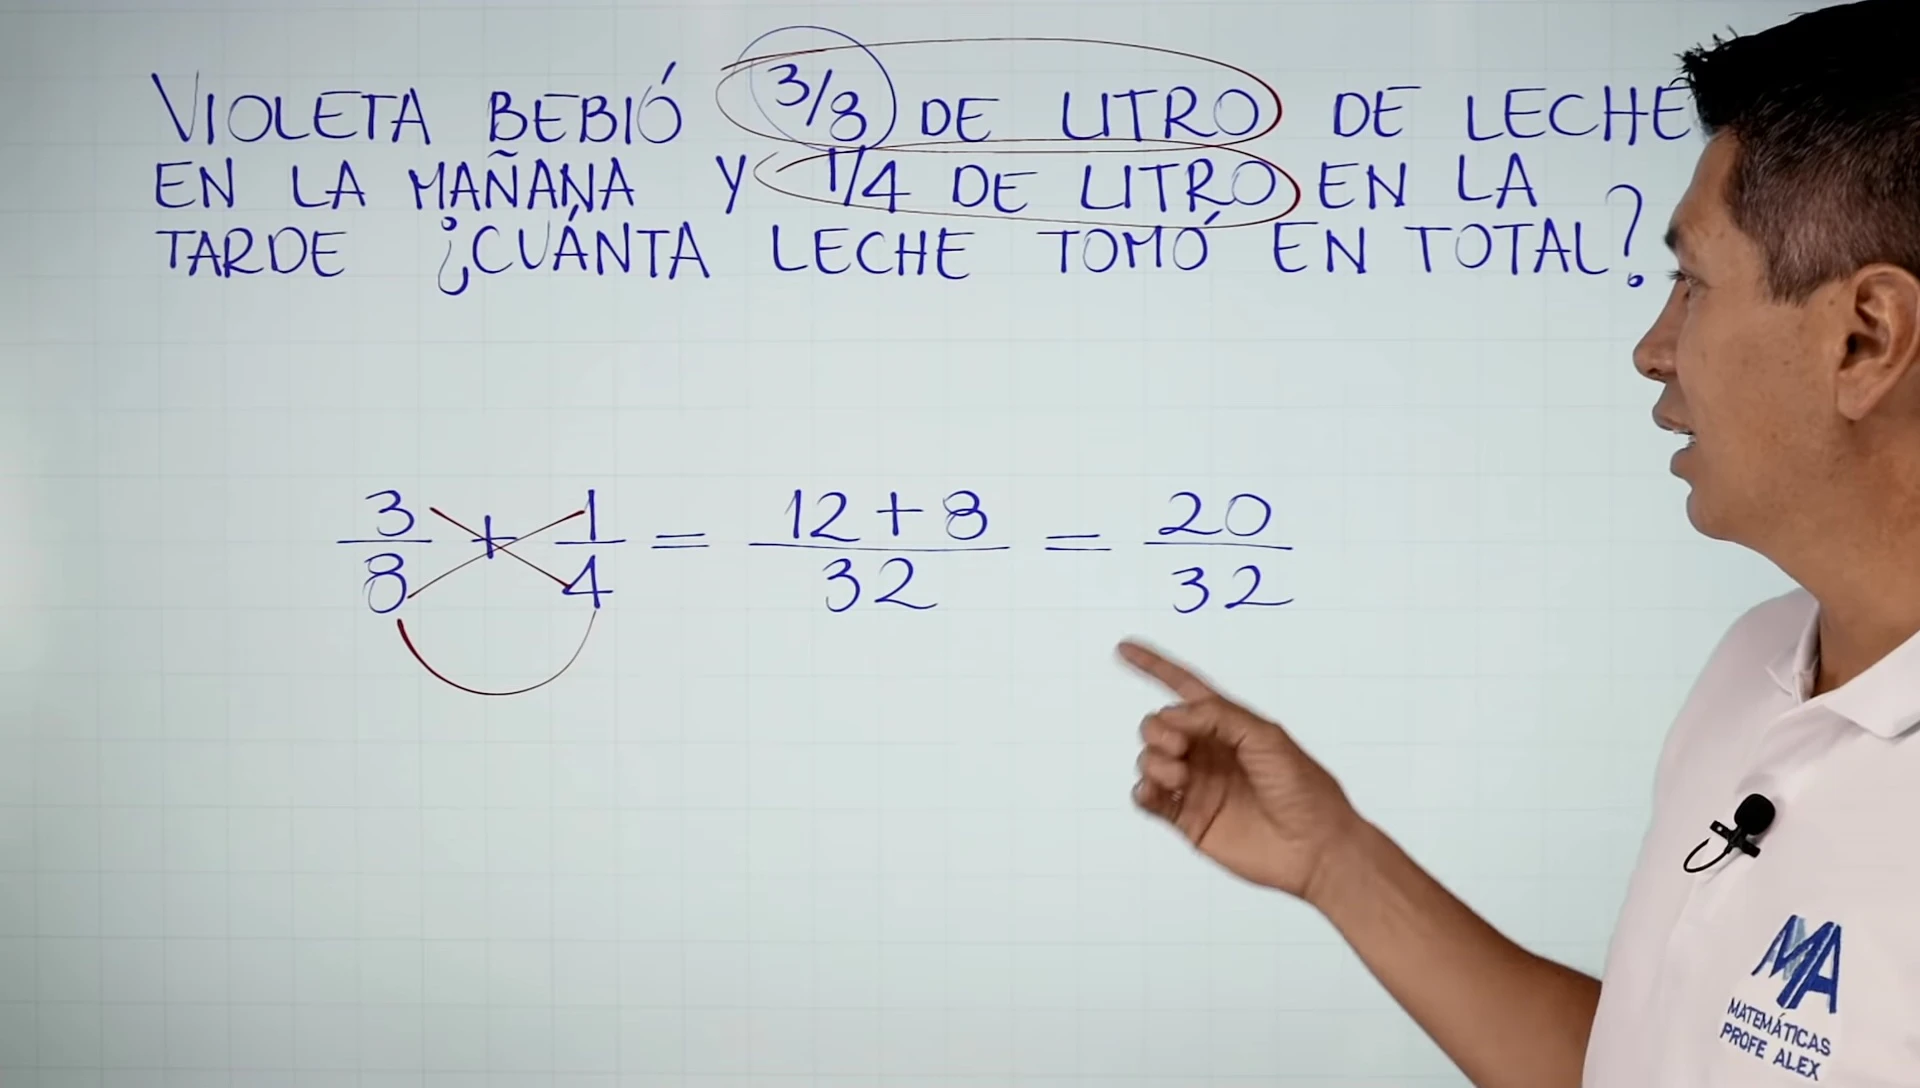 VIOLETA BEBIÓ 3/8 DE LITRO DE LECHE
EN LA MAÑANA Y 1/4 DE LITRO EN LA
TARDE ¿CUÁNTA LECHE TOMÓ EN TOTAL?
3/8 + 1/4 = 12+8/32 = 20/32
MA
MATEMÁTICAS
PROFE ALEX